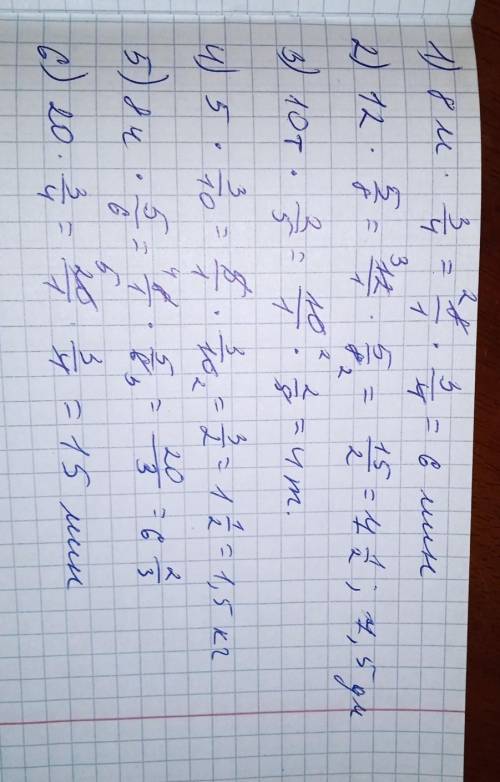 1) 8 м · 3/4 = 8/1 2 · 3/4 = 6 мин
2) 12 · 5/8 = 3 12/1 · 5/8 2 = 15/2 = 7 1/2 ; 7,5 дм
3) 10т · 2/5 = 10/1 2 · 2/5 = 4 т.
4) 5 · 3/10 = 5/1 · 3/10 2 = 3/2 = 1 1/2 = 1,5 кг
5) 8ч · 5/6 = 4 8/1 · 5/6 3 = 20/3 = 6 2/3
6) 20 · 3/4 = 5 20/1 · 3/4 = 15 мин